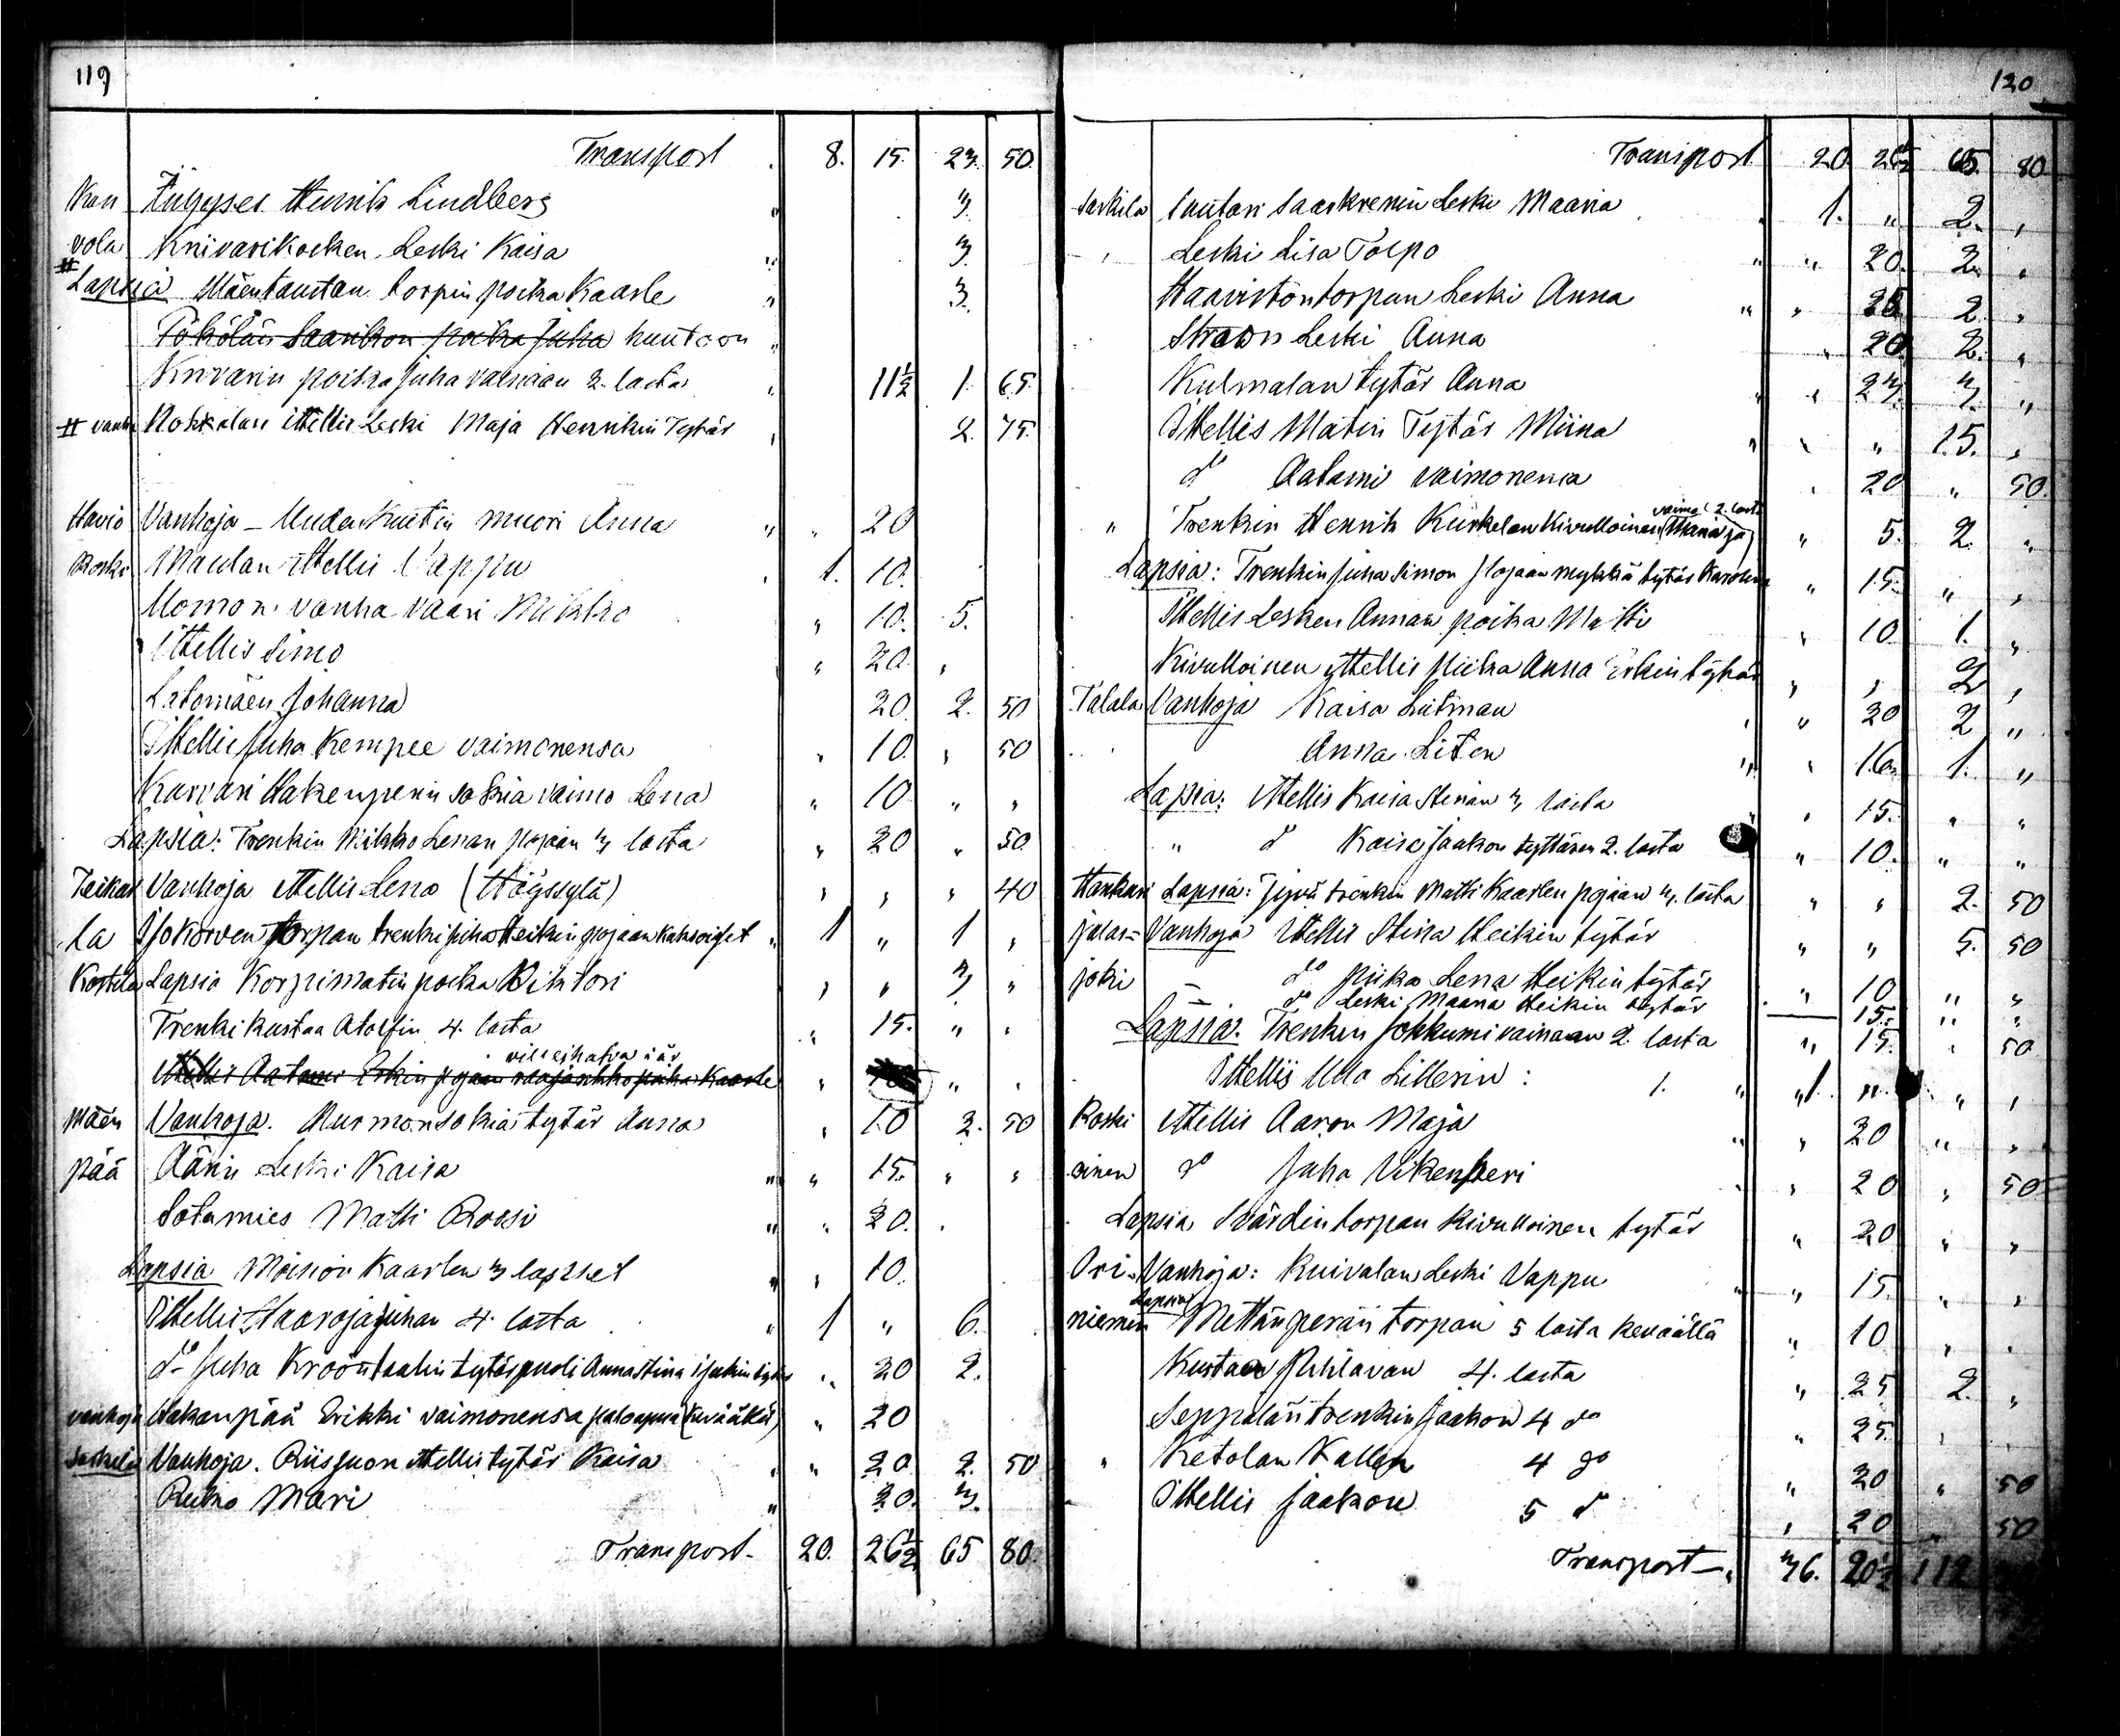 119
Transport 8. 15. 23. 50.
Kan Äijgyses Henrik Lindberg " 3.
vola Knivarikosken Leski Kaisa " 3.
# Lapsia Mäentaustan torpin poika Kaarle " 3.
Pökölän Saarikon poika Juha huutoon "
Knivarin poika Juha vainaan 2. lasta " 11½ 1. 65.
# vanha Nokkalan ittellis Leski Maja Henrikin Tytär 2. 75.
Havio Vanhoja – Uuden Kuutin muori Anna " " 20
Koski Maulan ittellis Vappu 1. 10.
Momon vanha vaari Mikko " 10. 5.
Ittellis Simo " 20. "
Latomäen Johanna 20. 2. 50
Ittellis Juha Kempee vaimonensa " 10. " 50
Karvari Hakenperin sokia vaimo Lena " 10 " "
Lapsia: Trenkin Mikko Lenan pojan 3 lasta " 20 " 50
Teikar Vanhoja ittellis Lena (Höyssylä) " " " 40
la Jokorven torpan trenki juha Heikin pojan kaksoiset " 1 " 1 "
Kostela Lapsia Korpimatin poika Vihtori " " 3 "
Trenki Kustaa Atolfin 4. lasta " 15. " "
Ittellis Aatami Erkin pojan poika Kaarle " " "
Mäen Vanhoja. Murmon sokia tytär Anna " 10 2. 50
pää Äärin Leski Kaisa " " 15. " "
Sotamies Matti Roosi " " 20. "
Lapsia Moision Kaarlen 3 lapset " " 10.
Ittellis Haaroja juhan 4. lasta " 1 " 6.
do Juha Kröönstaalin tytärpuoli Anna Stina " 20 2.
vanhoja Hakanpää Erikki vaimonensa (keväällä) " 20
Saskela Vanhoja. Riissuon ittellis tytär Kaisa " " 20. 2. 50
Ruko Mari " 20. 3.
Transport. 20. 26½ 65 80
120
Transport 20 26½ 65. 80
Saskela Suutari Saaskrenin Leski Maaria 1. " 2. "
" Leski Lisa Tolpo " " 20. 2. "
Haavistontorpan Leski Anna " " 25 2. "
Straan Leski Anna " 20 2. "
Kulmalan tytär Anna " " 23. 3. "
Ittellis Matin Tytär Miina " " " 15. "
do Aatami vaimonensa " 20 " 50.
" Trenkin Henrik Kurkelan Kivulloinen vaimo (Maria ja 2. lasta) " 5. 2. "
Lapsia: Trenkin Juha Simon Pojaan mykkä tytär Karolina " 15. " "
Ittellis Lesken Annan poika Matti " 10 1. "
Kivulloinen ittellis piika Anna Erkin tytär " " 2 "
Talala Vanhoja Kaisa Liitman " " 20 2 "
Anna Liten " " 16. 1. "
Lapsia: ittellis Kaisa Stinan 3 lasta " 15. " "
" do Kaisa Jaakon tyttären 2. lasta " 10. " "
Hankuri Lapsia: Jyvä trenkin Matti Kaarlen pojaan 3. lasta " " 2. 50
jalas= Vanhoja Ittellis Stina Heikin tytär " " 5. 50
joki do piika Lena Heikin tytär " 10 " "
do Leski Maana Heikin tytär 15. " "
Lapsia. Trenkin Jokkumi vainaan 2. lasta " 15. " 50
Ittellis Ulla Lillerin: 1. " 1. " " "
Koski ittellis Aaron Maja " " 20 " "
ainen do Juha Vikenperi " 20 " 50
Lapsia Svärdin torpan kivulloinen tytär " 20 " "
Ori= Vanhoja: Kuivalan Leski Vappu " " 15. " "
niemen Lapsia Mettänperän torpan 5 lasta keväällä " 10 " "
Kustaa Puhlavan 4. lasta " 25 2. "
Seppälän trenkin Jaakon 4 do " 25. " "
" Ketolan Kallen 4 do " 20 " 50
Ittellis Jaakon 5 do " 20 " 50
Transport – 36. 20½ 112